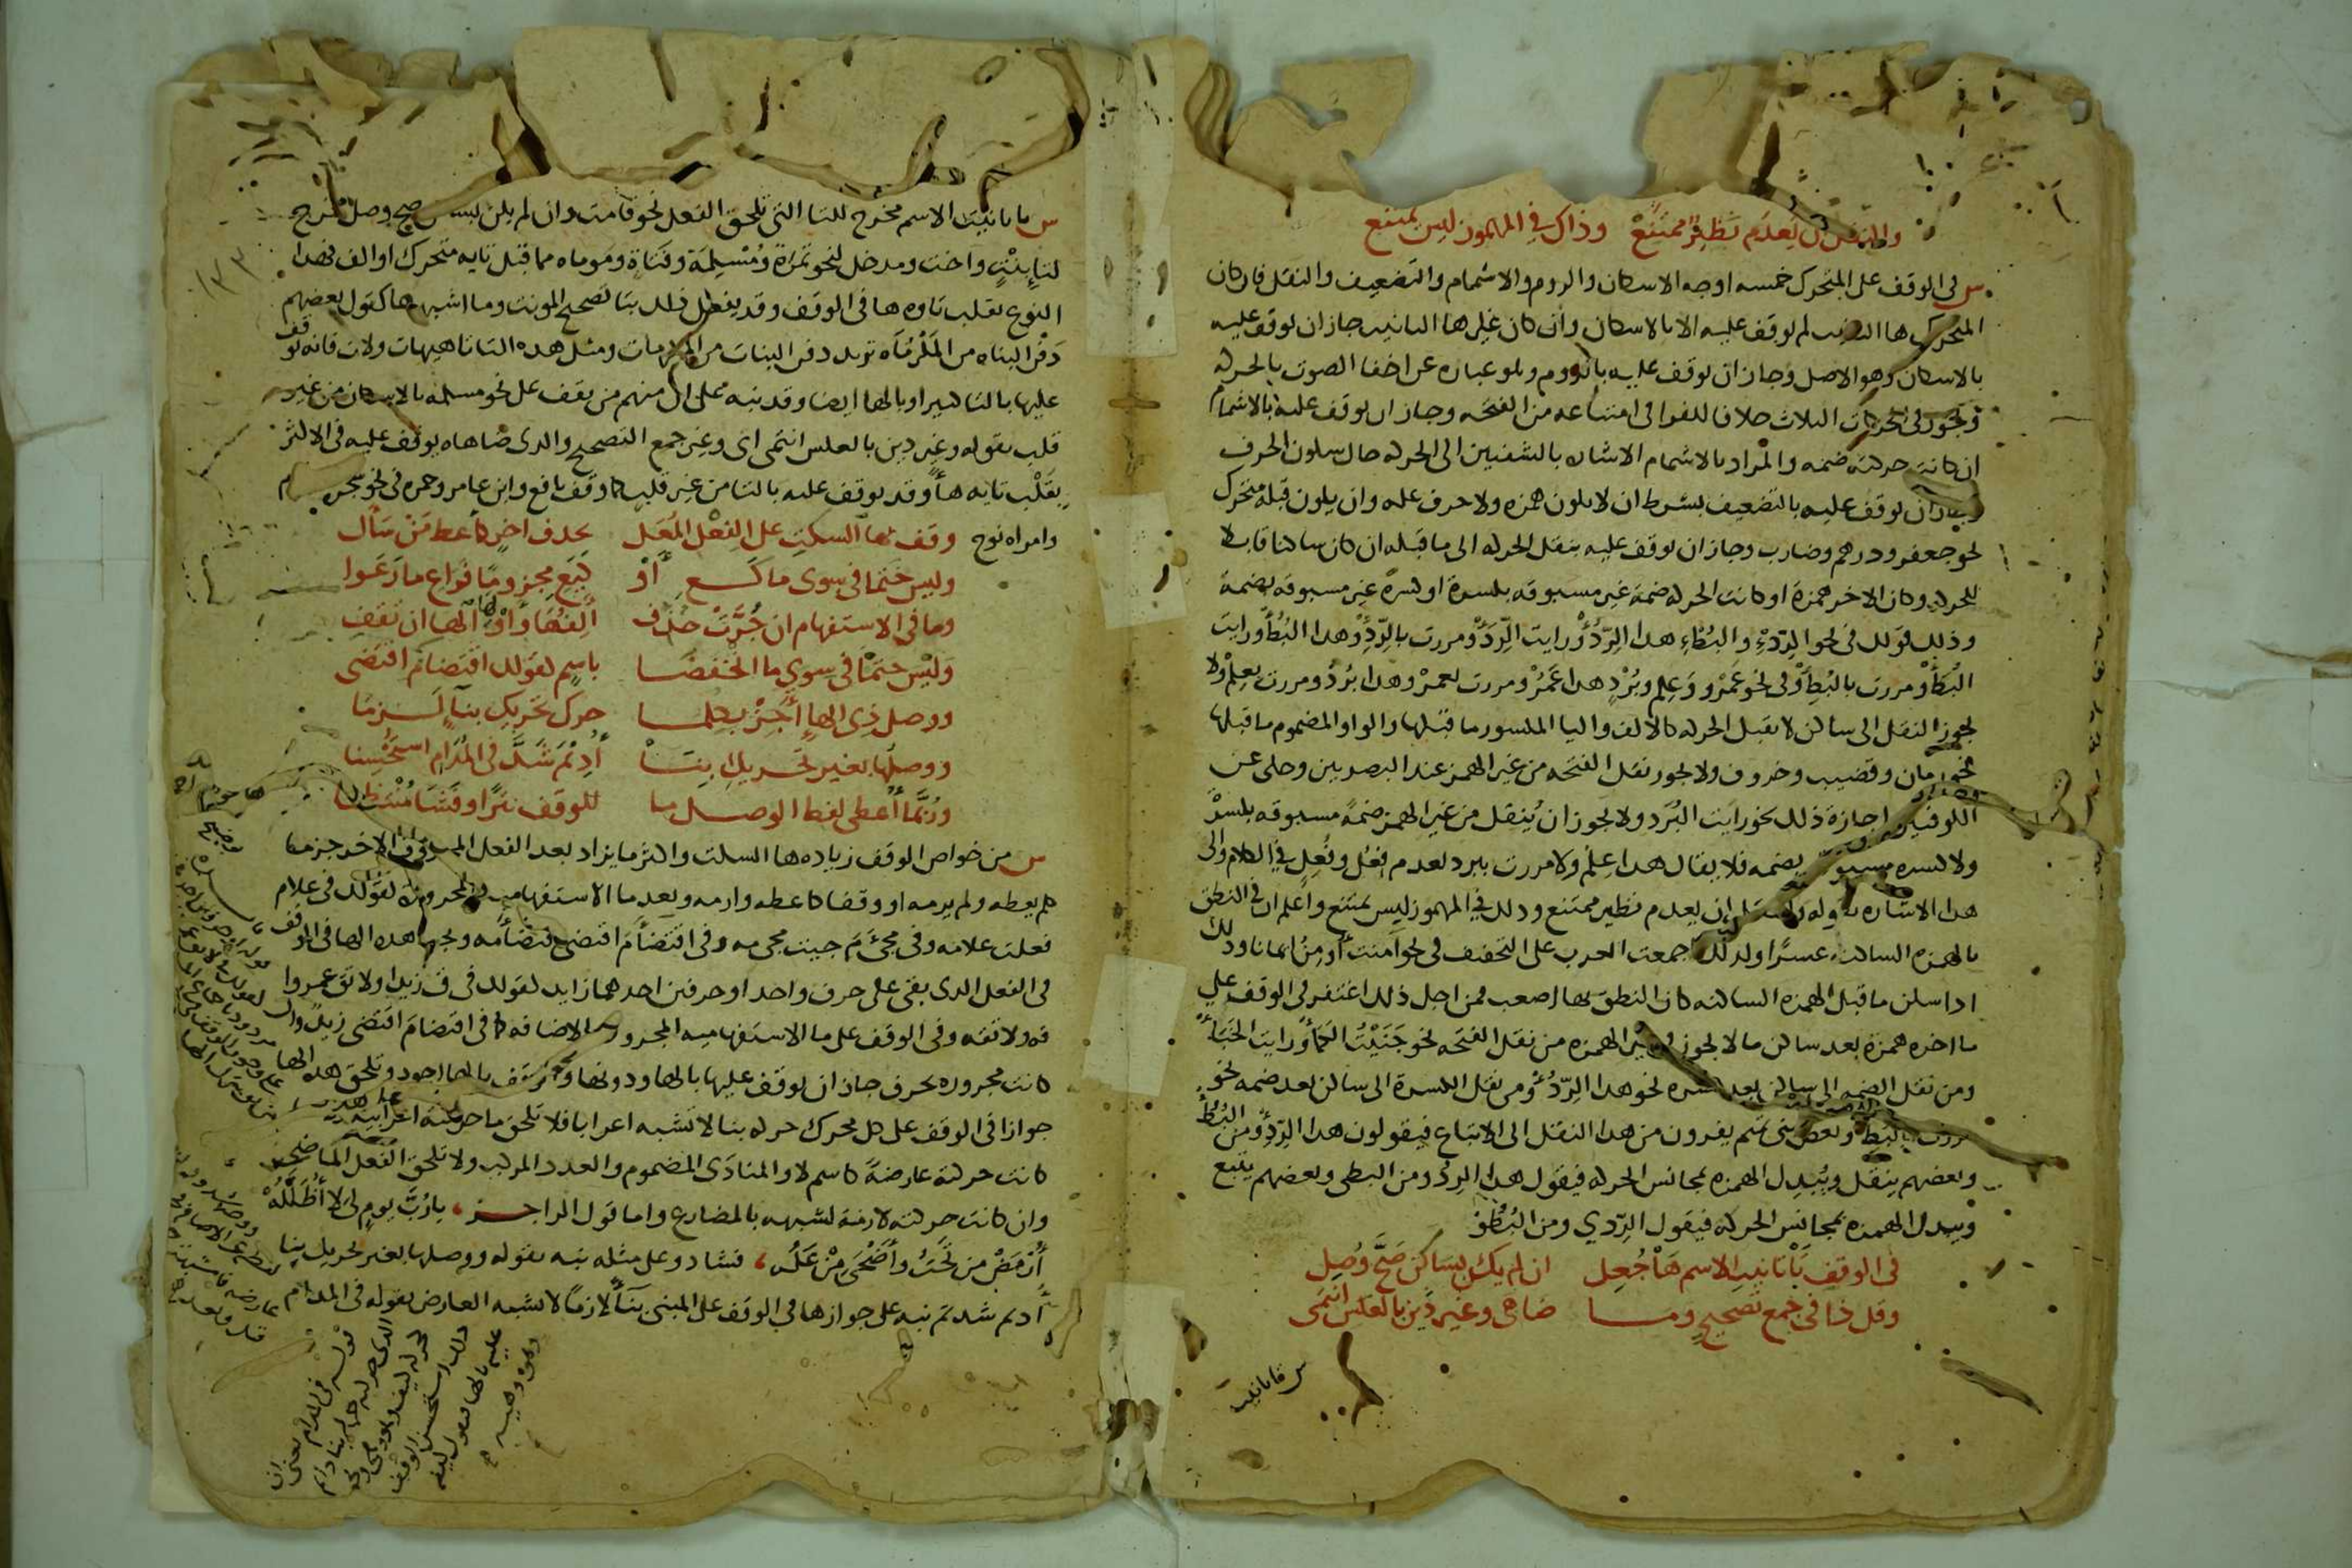 والنقل ان يعدم نظير ممتنع وذاك في المهموز ليس يمتنع
س في الوقف على المتحرك خمسه اوجه الاسكان والروم والاشمام والتضعيف والنقل فان كان
المتحرك ها التانيث لم يوقف عليه الا بالاسكان وان كان غير ها التانيث جاز ان يوقف عليه
بالاسكان وهو الاصل وجاز ان يوقف عليه بالروم وهو عباره عن اخفا الصوت بالحركه
ويجوز في الحركات الثلاث خلافا للفرا في امتناعه من الفتحه وجاز ان يوقف عليه بالاشمام
ان كانت حركته ضمه والمراد بالاشمام الاشاره بالشفتين الى الحركه حال سكون الحرف
وجاز ان يوقف عليه بالتضعيف بشرط ان لا يكون همزه ولا حرف عله وان يكون قبله متحرك
نحو جعفر ودرهم وضارب وجاز ان يوقف عليه بنقل الحركه الى ما قبله ان كان ساكنا قابلا
للحركه وكان الاخر همزة او كانت الحركه ضمة غير مسبوقه بكسرة او كسرة غير مسبوقه بضمة
وذلك قولك في نحو الردء والبطء هذا الردؤ ورايت الردأ ومررت بالردئ وهذا البطؤ ورايت
البطأ ومررت بالبطئ وفي نحو عمرو وعلم وبرد هذا عمرو ومررت بعمرو وهذا برد ومررت بعلم ولا
يجوز النقل الى ساكن لا يقبل الحركه كالالف واليا المكسور ما قبلها والواو المضموم ما قبلها
نحو زمان وقضيب وخروف ولا يجوز نقل الفتحه من غير الهمز عند البصريين وحكي عن
الكوفيين اجازة ذلك نحو رايت البرد ولا يجوز ان ينقل من غير الهمز ضمة مسبوقه بكسرة
ولا كسره مسبوقه بضمه فلا يقال هذا علم ولا مررت ببرد لعدم فعل وفعل في الكلام والى
هذا الاشاره بقوله والنقل ان يعدم نظير ممتنع وذلك في المهموز ليس يمتنع واعلم ان في النطق
بالهمزه الساكنه عسرا ولذلك اجمعت العرب على التخفيف في نحو امنت أومن ايمانا وذلك
اذا سكن ما قبل الهمزه الساكنه كان النطق بها اصعب فمن اجل ذلك اغتفر في الوقف على
ما اخره همزة بعد ساكن ما لا يجوز في غير الهمزه من نقل الفتحه نحو جنيت الكمأ ورايت الخبأ
ومن نقل الضمه الى ساكن بعد كسره نحو هذا الردؤ ومن نقل الكسرة الى ساكن بعد ضمه نحو
مررت بالبطئ وبعض بني تميم يفرون من هذا النقل الى الاتباع فيقولون هذا الردئ ومن البطؤ
وبعضهم ينقل ويبدل الهمزه بمجانس الحركه فيقول هذا الردو ومن البطي وبعضهم يتبع
ويبدل الهمزه بمجانس الحركه فيقول الردي ومن البطو
في الوقف تا تانيث الاسم ها جعل ان لم يكن بساكن صح وصل
وقل ذا في جمع تصحيح وما ضاهى وغير ذين بالعكس انتمى
س تا تانيث
س تا تانيث الاسم مخرج للتا التي تلحق الفعل نحو قامت وان لم يكن بساكن صح وصل مخرج
لتا بنت واخت ومدخل لنحو تمرة ومسلمة وفتاة وموماه مما قبل تايه متحرك او الف فهذا
النوع تقلب تاوه ها في الوقف وقد يفعل ذلك بتا تصحيح المونث وما اشبهها كقول بعضهم
دفن البناه من المكرماه تريد دفن البنات من المكرمات ومثل هذه التا تا هيهات ولات فانه يوقف
عليها بالتا كثيرا وبالها ايضا وقد نبه على ان منهم من يقف على نحو مسلمه بالاسكان من غير
قلب بقوله وغير ذين بالعكس انتمى اي وغير جمع التصحيح والذي ضاهاه يوقف عليه في الاكثر
بقلب تايه ها وقد يوقف عليه بالتا من غير قلب كما وقف نافع وابن عامر وحمزه في نحو شجرت
وامراه نوح وقف بها السكت على الفعل المعل بحذف اخر كاعط من سال
وليس حتما في سوى ما كع او كيع مجزوما فراع ما رعوا
وما في الاستفهام ان جرت حذف الفها واولها الها ان تقف
وليس حتما في سوى ما انخفضا باسم كقولك اقتضا م اقتضى
ووصل ذي الها اجز بكل ما حرك تحريك بنا لزما
ووصلها بغير تحريك بنا اديم شذ في المدام استحسنا
وربما اعطي لفظ الوصل ما للوقف نثرا وفشا منتظما
س من خواص الوقف زياده ها السكت واكثر ما يزاد بعد الفعل المحذوف الاخر جزما
كلم يعطه ولم يرمه او وقفا كاعطه وارمه وبعد ما الاستفهاميه المجرورة كقولك في علام
فعلت علامه وفي مجيء م جيت مجي مه وفي اقتضا م اقتضى اقتضا مه وتجب هذه الها في الوقف
في الفعل الذي بقي على حرف واحد او حرفين احدهما زايد كقولك في ق زيدا ولا تق عمروا
قه ولا تقه وفي الوقف على ما الاستفهاميه المجروره بالاضافه كما في اقتضا م اقتضى زيد وان
كانت مجروره بحرف جاز ان يوقف عليها بالها ودونها والوقف بالها اجود وتلحق هذه الها
جوازا في الوقف على كل محرك حركه بنا لا تشبه اعرابا فلا تلحق ما حركته اعرابيه
كانت حركته عارضة كاسم لا والمنادى المضموم والعدد المركب ولا تلحق الفعل الماضي
وان كانت حركته لازمة لشبهه بالمضارع واما قول الراجز يا رب يوم لي لا اظلله
ارمض من تحت واضحى من عله فشاذ وعلى مثله نبه بقوله ووصلها بغير تحريك بنا
اديم شذ ثم نبه على جوازها في الوقف على المبني بنا لازما لا يشبه العارض بقوله في المدام